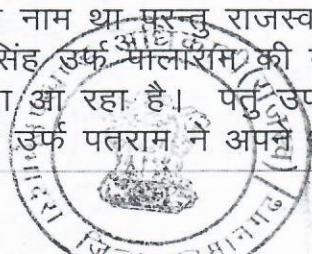 नाम था परन्तु राजस्व
सिंह उर्फ पालाराम की
आ रहा है। पतु उप
उर्फ पतराम ने अपने